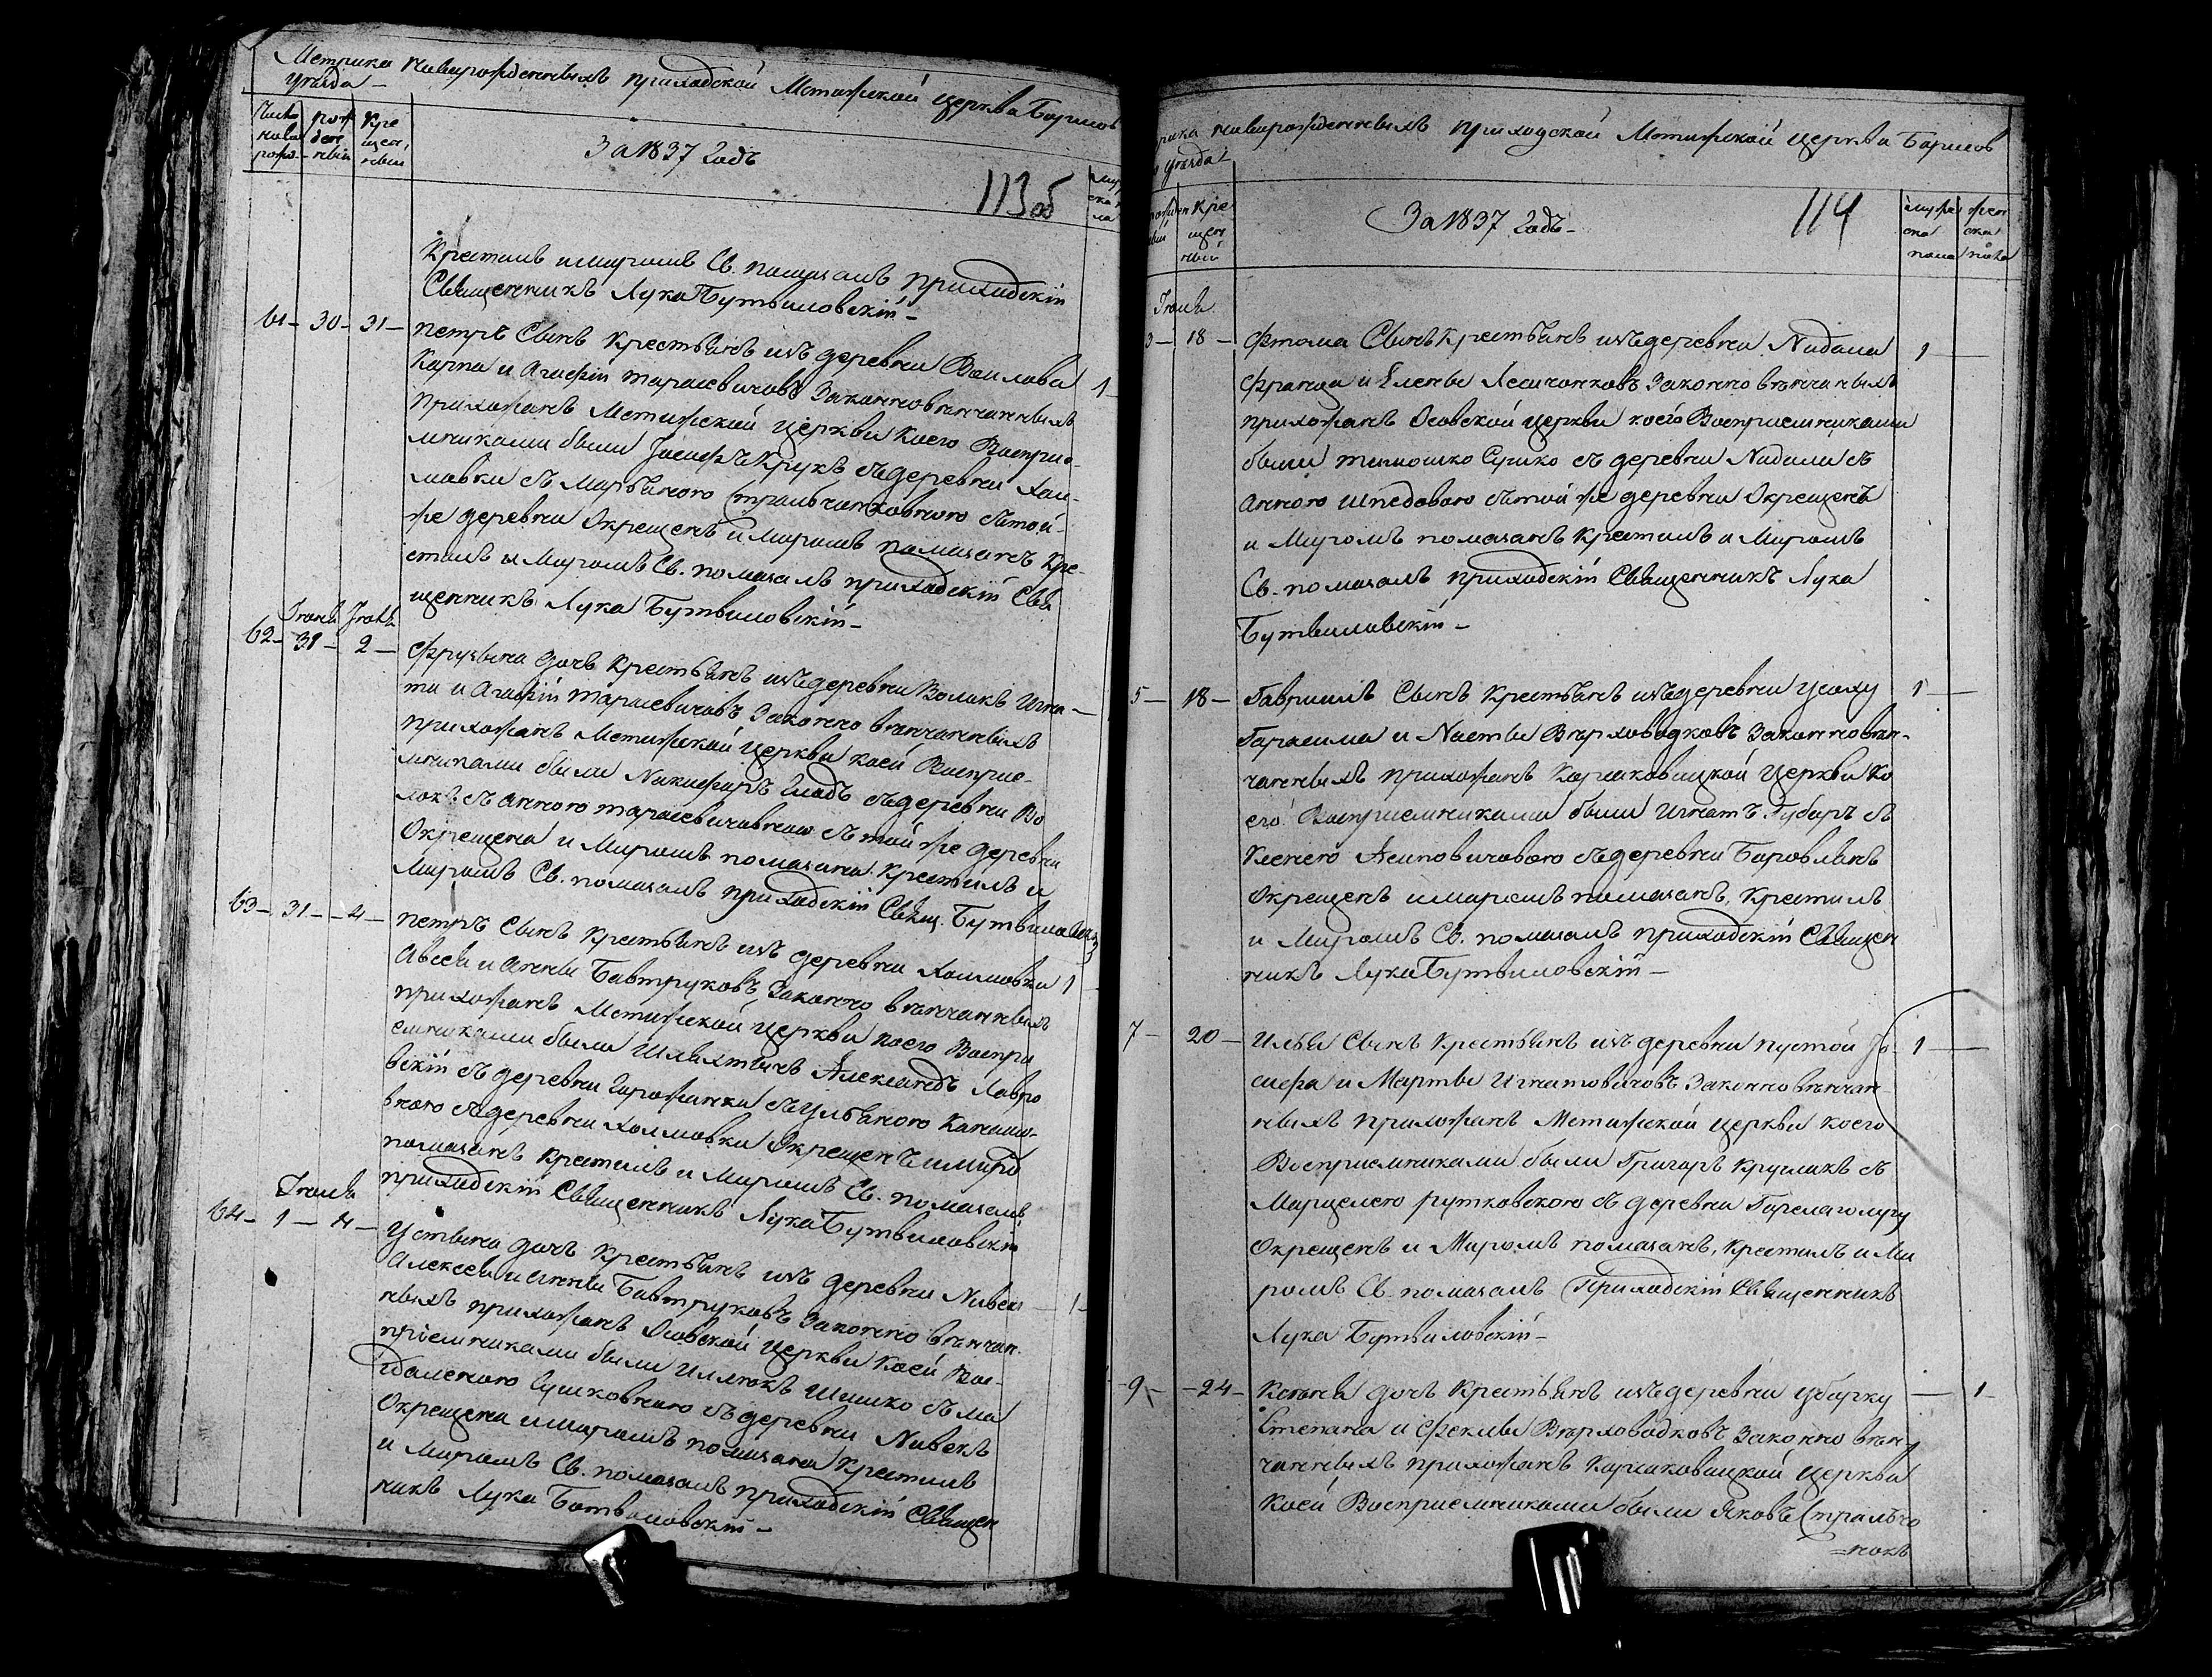 Метрика новорожденныхъ приходской Мстижской церкви Борисов
уѣзда
Число новорож- рожденныи Крещенныи
За 1837 Годъ
113об
Крестилъ и миромъ Св. помазалъ приходскій
Священникъ Лука Бутвиловскій
61 30 31 Петръ Сынъ Крестьянъ изъ деревни
Карпа и Агафіи Тарасевичовъ Законновѣнчанныхъ 1
Прихожанъ Мстижской церкви коего Воспріе-
мниками были Іосифъ Крукъ съ деревни Хол-
мовки съ Марьяною съ той
же деревни Окрещенъ и Миромъ помазанъ Кре-
стилъ и Миромъ Св. помазалъ приходскій Свя
щенникъ Лука Бутвиловскій
62 31 2 дочь Крестьянъ изъ деревни Волокъ Игна
та и Агафіи Тарасевичовъ Законно вѣнчанныхъ
прихожанъ Мстижской церкви коей Воспріе-
мниками были Никифоръ съ деревни Во
локъ съ Анною Тарасевичовною съ той же деревни
Окрещена и Миромъ помазана Крестилъ и
Миромъ Св. помазалъ приходскій Свящ. Бутвиловскій
63 31 4 Петръ Сынъ Крестьянъ изъ деревни Холмовки 1
Авсея и Анны Бавтруковъ Законно вѣнчанныхъ
прихожанъ Мстижской церкви коего Воспри
емниками были Шляхтичъ Александъ Лавро
вскій съ деревни съ Ульяною
вною съ деревни Холмовки Окрещенъ и миро
помазанъ Крестилъ и Миромъ Св. помазалъ
приходскій Священникъ Лука Бутвиловскій
64 1 4 Устина дочь Крестьянъ изъ деревни Нивокъ 1
Алексея и Анны Бавтруковъ Законно вѣнчан-
ныхъ прихожанъ Осовской церкви коей Вос-
пріемниками были съ Ма
гдаленою Сушковною съ деревни Нивокъ
Окрещена и миромъ помазана Крестилъ
и Миромъ Св. помазалъ приходскій Священ
никъ Лука Бутвиловскій
новорожденныхъ приходской Мстижской церкви Борисов
уѣзда
Крещенныи
За 1837 Годъ
114
мужеска пола женска пола
3 18 Фтома Сынъ Крестьянъ изъ деревни 1
Франца и Елены Законно вѣнчанныхъ
прихожанъ Осовской церкви коего Воспріемниками
были Тимошко Сушко съ деревни съ
Анною съ той же деревни Окрещенъ
и Миромъ помазанъ Крестилъ и Миромъ
Св. помазалъ приходскій Священникъ Лука
Бутвиловскій
5 18 Гавріилъ Сынъ Крестьянъ изъ деревни 1
Гарасима и Насти Верховодковъ Законно вѣн-
чанныхъ прихожанъ церкви Ко
его Воспріемниками были Игнатъ Губаръ съ
съ деревни Боровлянъ
Окрещенъ и миромъ помазанъ, Крестилъ
и Миромъ Св. помазалъ приходскій Священ
никъ Лука Бутвиловскій
7 20 Илья Сынъ Крестьянъ изъ деревни Пустой Іо- 1
сифа и Марты Игнатовичовъ Законно вѣнчан-
ныхъ прихожанъ Мстижской церкви коего
Воспріемниками были Григоръ съ
Марцелею Рутковскою съ деревни Горелаголугу
Окрещенъ и Миромъ помазанъ, Крестилъ и Ми
ромъ Св. помазалъ Приходскій Священникъ
Лука Бутвиловскій
9 24 дочь Крестьянъ изъ деревни Уборку 1
Степана и Феклы Верховодковъ Законно вѣн-
чанныхъ прихожанъ церкви
Коей Воспріемниками были Яковъ Стральчо
=нокъ